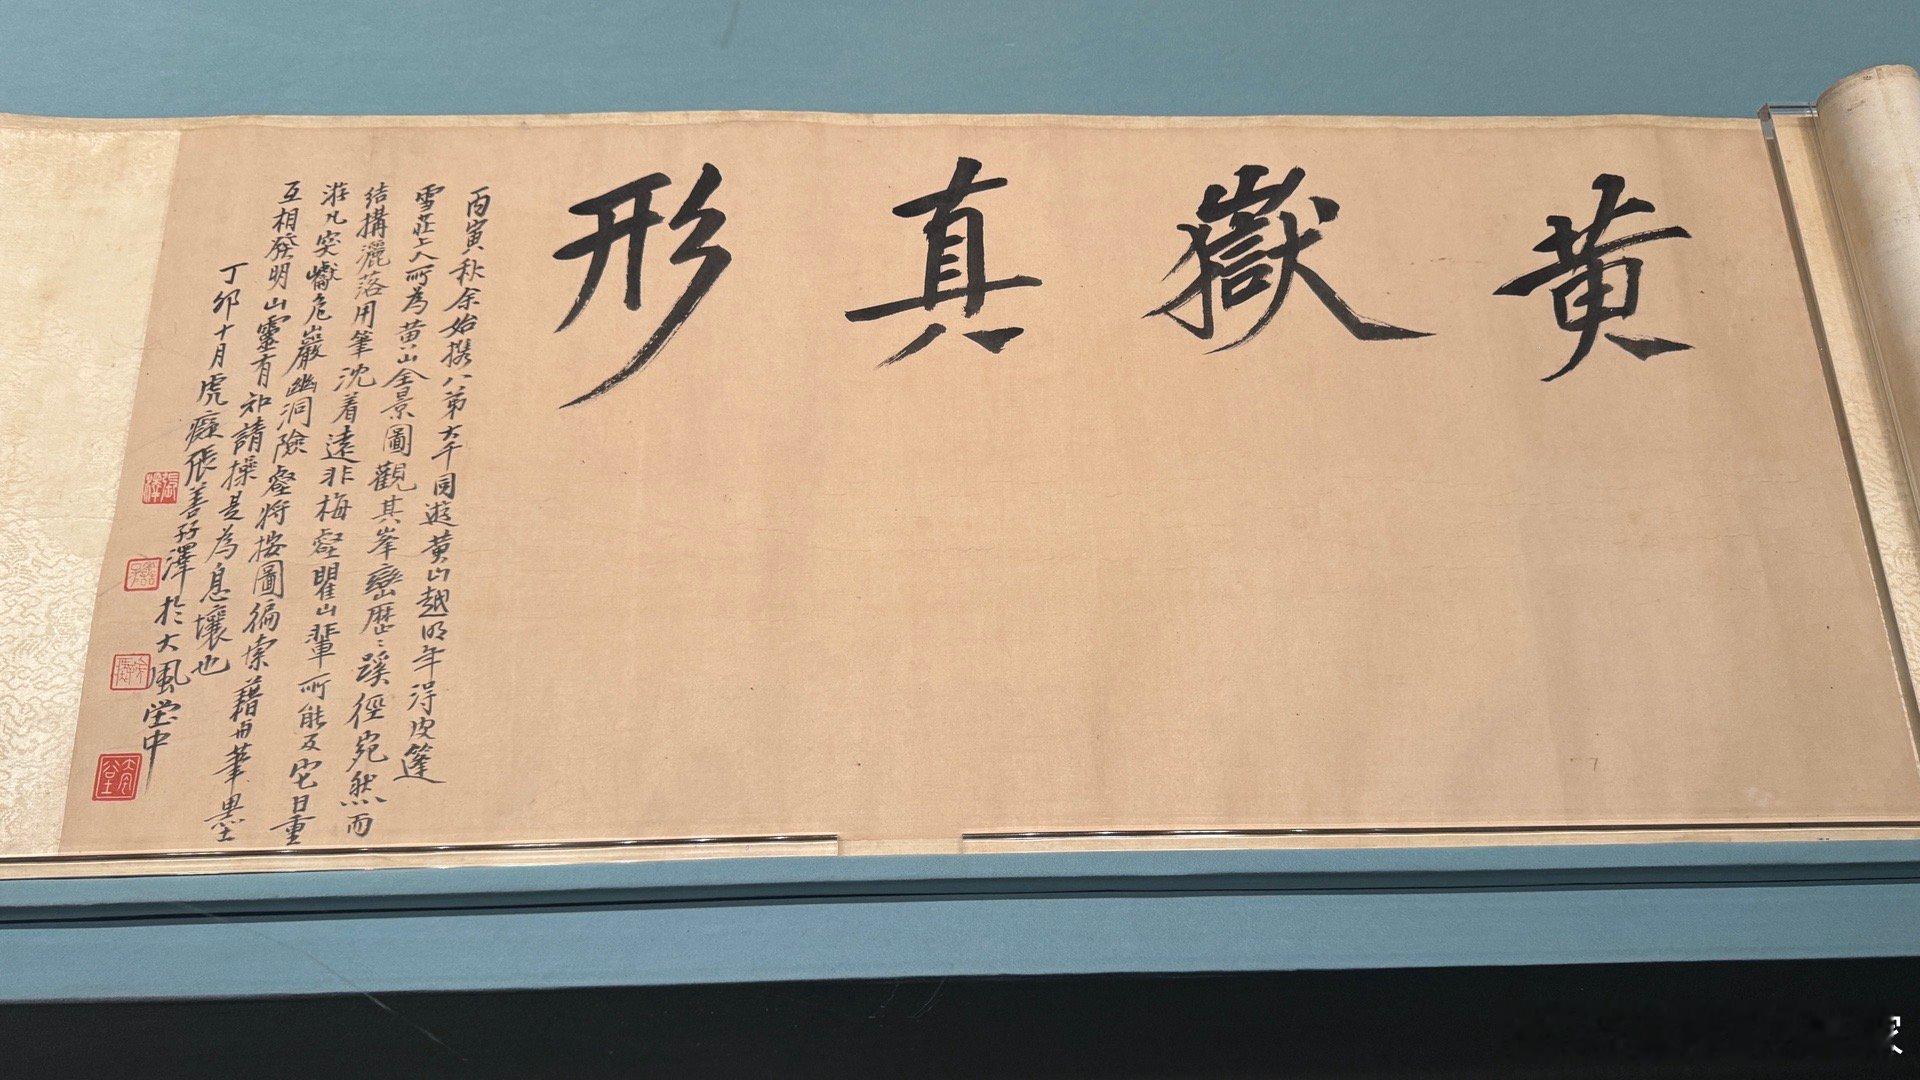 黄嶽真形
丙寅秋余始攜八弟大千同遊黄山越明年得皮篷
雪莊上人所為黄山全景圖觀其峯巒歷〻蹊徑宛然而
結構灑落用筆沈着遠非梅壑瞿山輩所能及它日重
游凡突巘危巖幽洞險壑將按圖徧索藉此筆墨
互相發明山靈有知請操是為息壤也
丁卯十月虎癡張善孖澤於大風堂中
張澤
善子
虎癡
大風堂